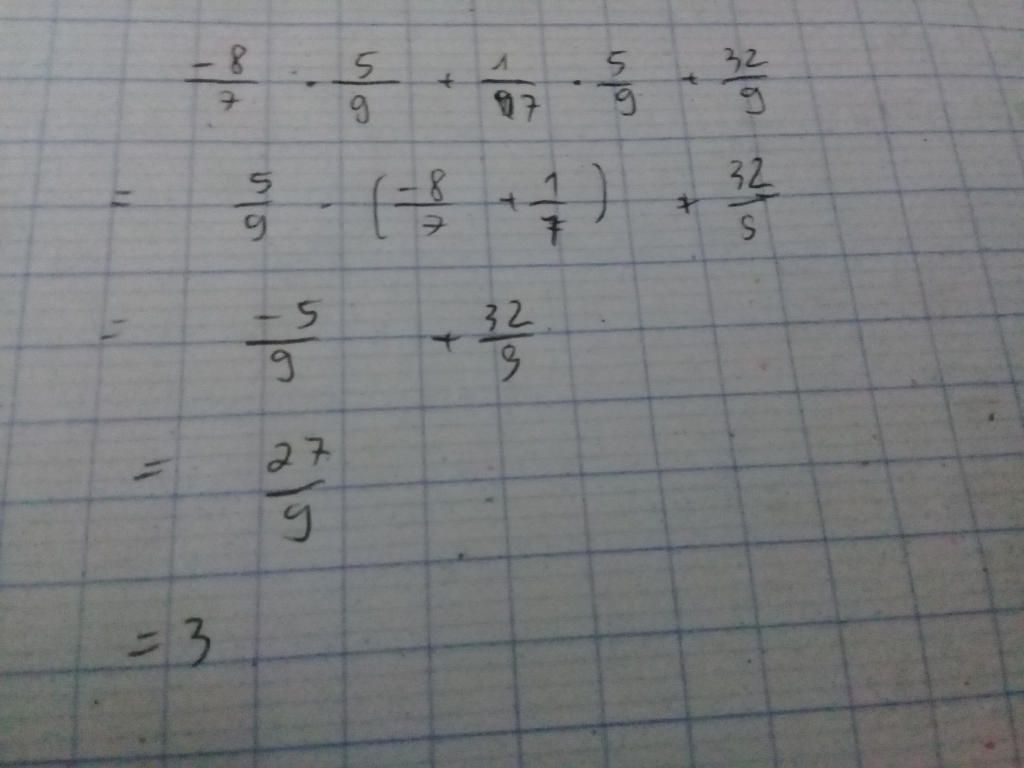 -8/7 · 5/9 + 1/7 · 5/9 + 32/9
= 5/9 · (-8/7 + 1/7) + 32/9
= -5/9 + 32/9
= 27/9
= 3